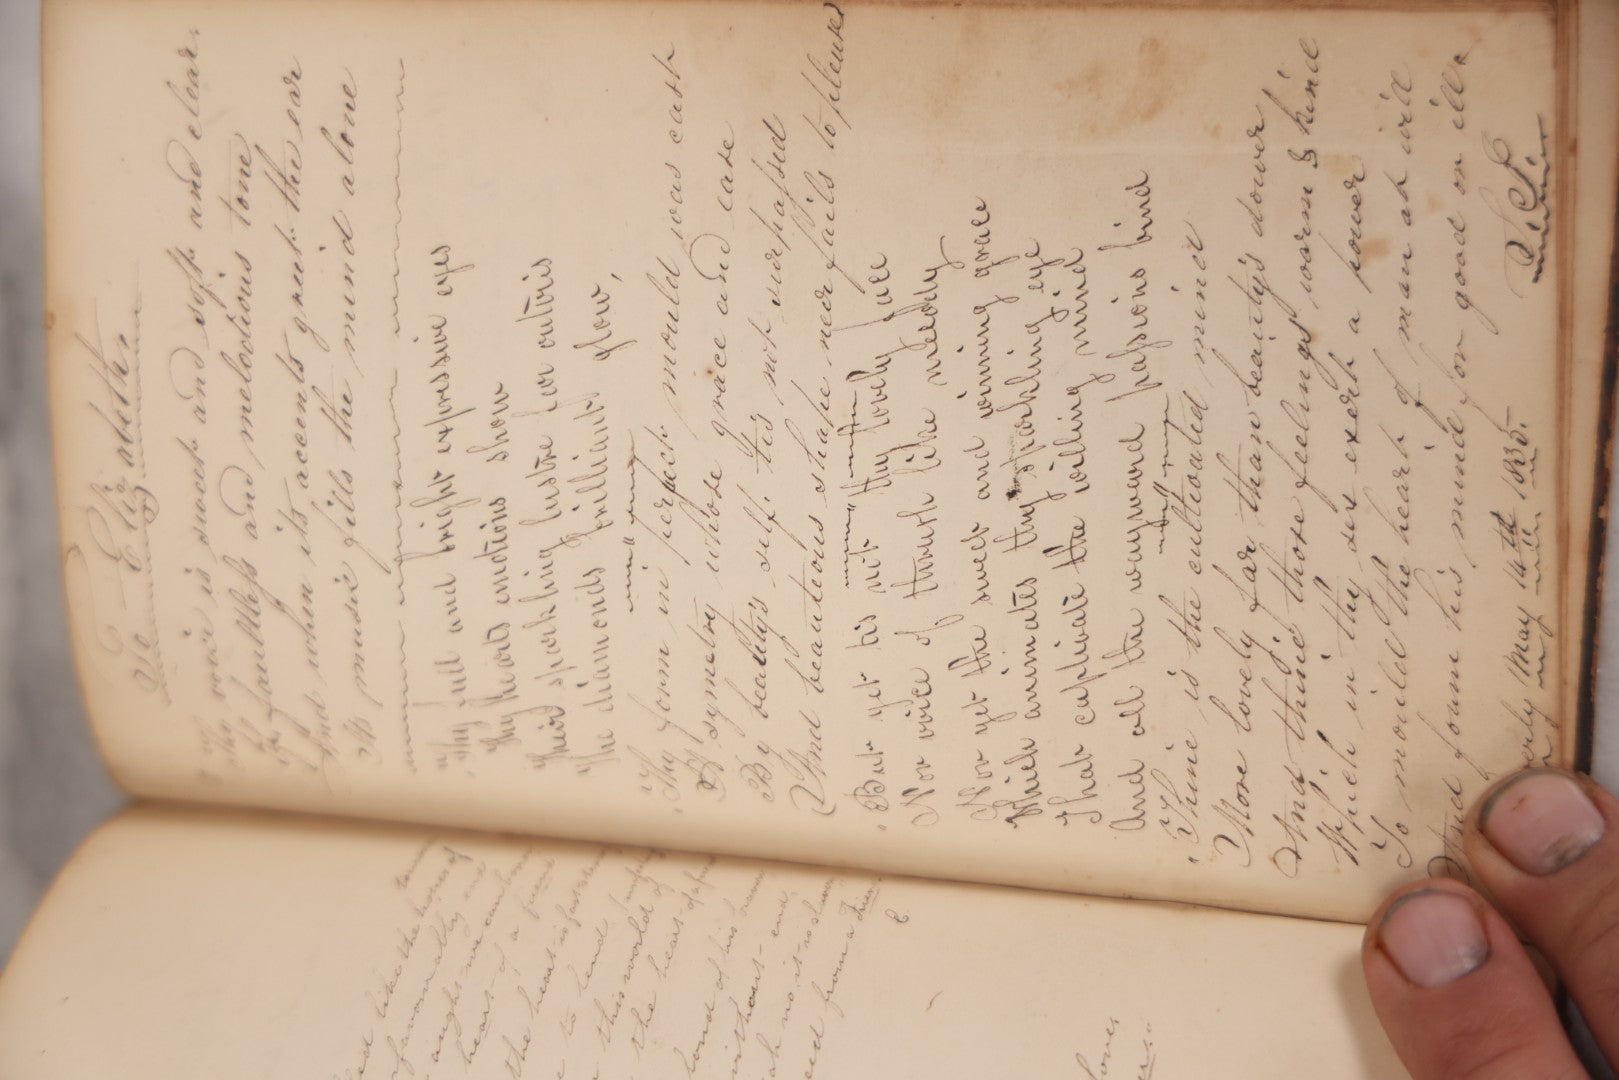 To Elizabeth
Thy voice is sweet and soft and clear.
It faultless and melodious tone
And when its accents greet the ear
Its music fills the mind alone
Thy full and bright expressive eyes
Thy hearts emotions show
Their sparkling lustre far outvis
The diamonds brilliants glow,
Thy form in perfect mould was cast
A symetry whose grace and ease
By beauty's self tis not surpassed
And beauteous shape neer fails to please
But yet tis not thy lovely face
Nor voice of thrush like melody
Nor yet the sweet and winning grace
Which animates thy sparkling eye
That captivate the willing mind
And all the wayward passions bind
Thine is the cultivated mind
More lovely far than beauty's dower
And thine those feelings warm & kind
Which in thy sex exert a power
To mould the heart of man at will
And form his mind for good or ill.
May 14th 1835.
like the
favorably
aught we can
heart of a friend
the heart is
to lend
this world of
the heart
bond of his
without end
no it is
from a Friend
E